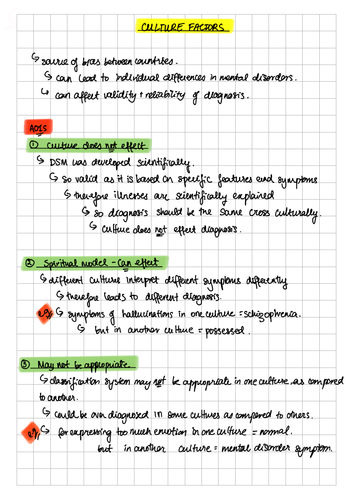 CULTURE FACTORS
↳ source of bias between countries.
↳ can lead to individual differences in mental disorders.
↳ can affect validity + reliability of diagnosis.
AO1s
① Culture does not effect
↳ DSM was developed scientifically.
↳ so valid as it is based on specific features and symptoms
↳ therefore illnesses are scientifically explained
↳ so diagnosis should be the same cross culturally.
↳ culture does not effect diagnosis.
② Spiritual model - can effect
↳ different cultures interpret different symptoms differently
↳ therefore leads to different diagnosis.
eg ↳ symptoms of hallucinations in one culture = schizophrenia.
but in another culture = possessed.
③ May not be appropriate
↳ classification system may not be appropriate in one culture as compared
to another.
↳ could be over diagnosed in some cultures as compared to others.
eg. ↳ for expressing too much emotion in one culture = normal.
but in another culture = mental disorder symptom.